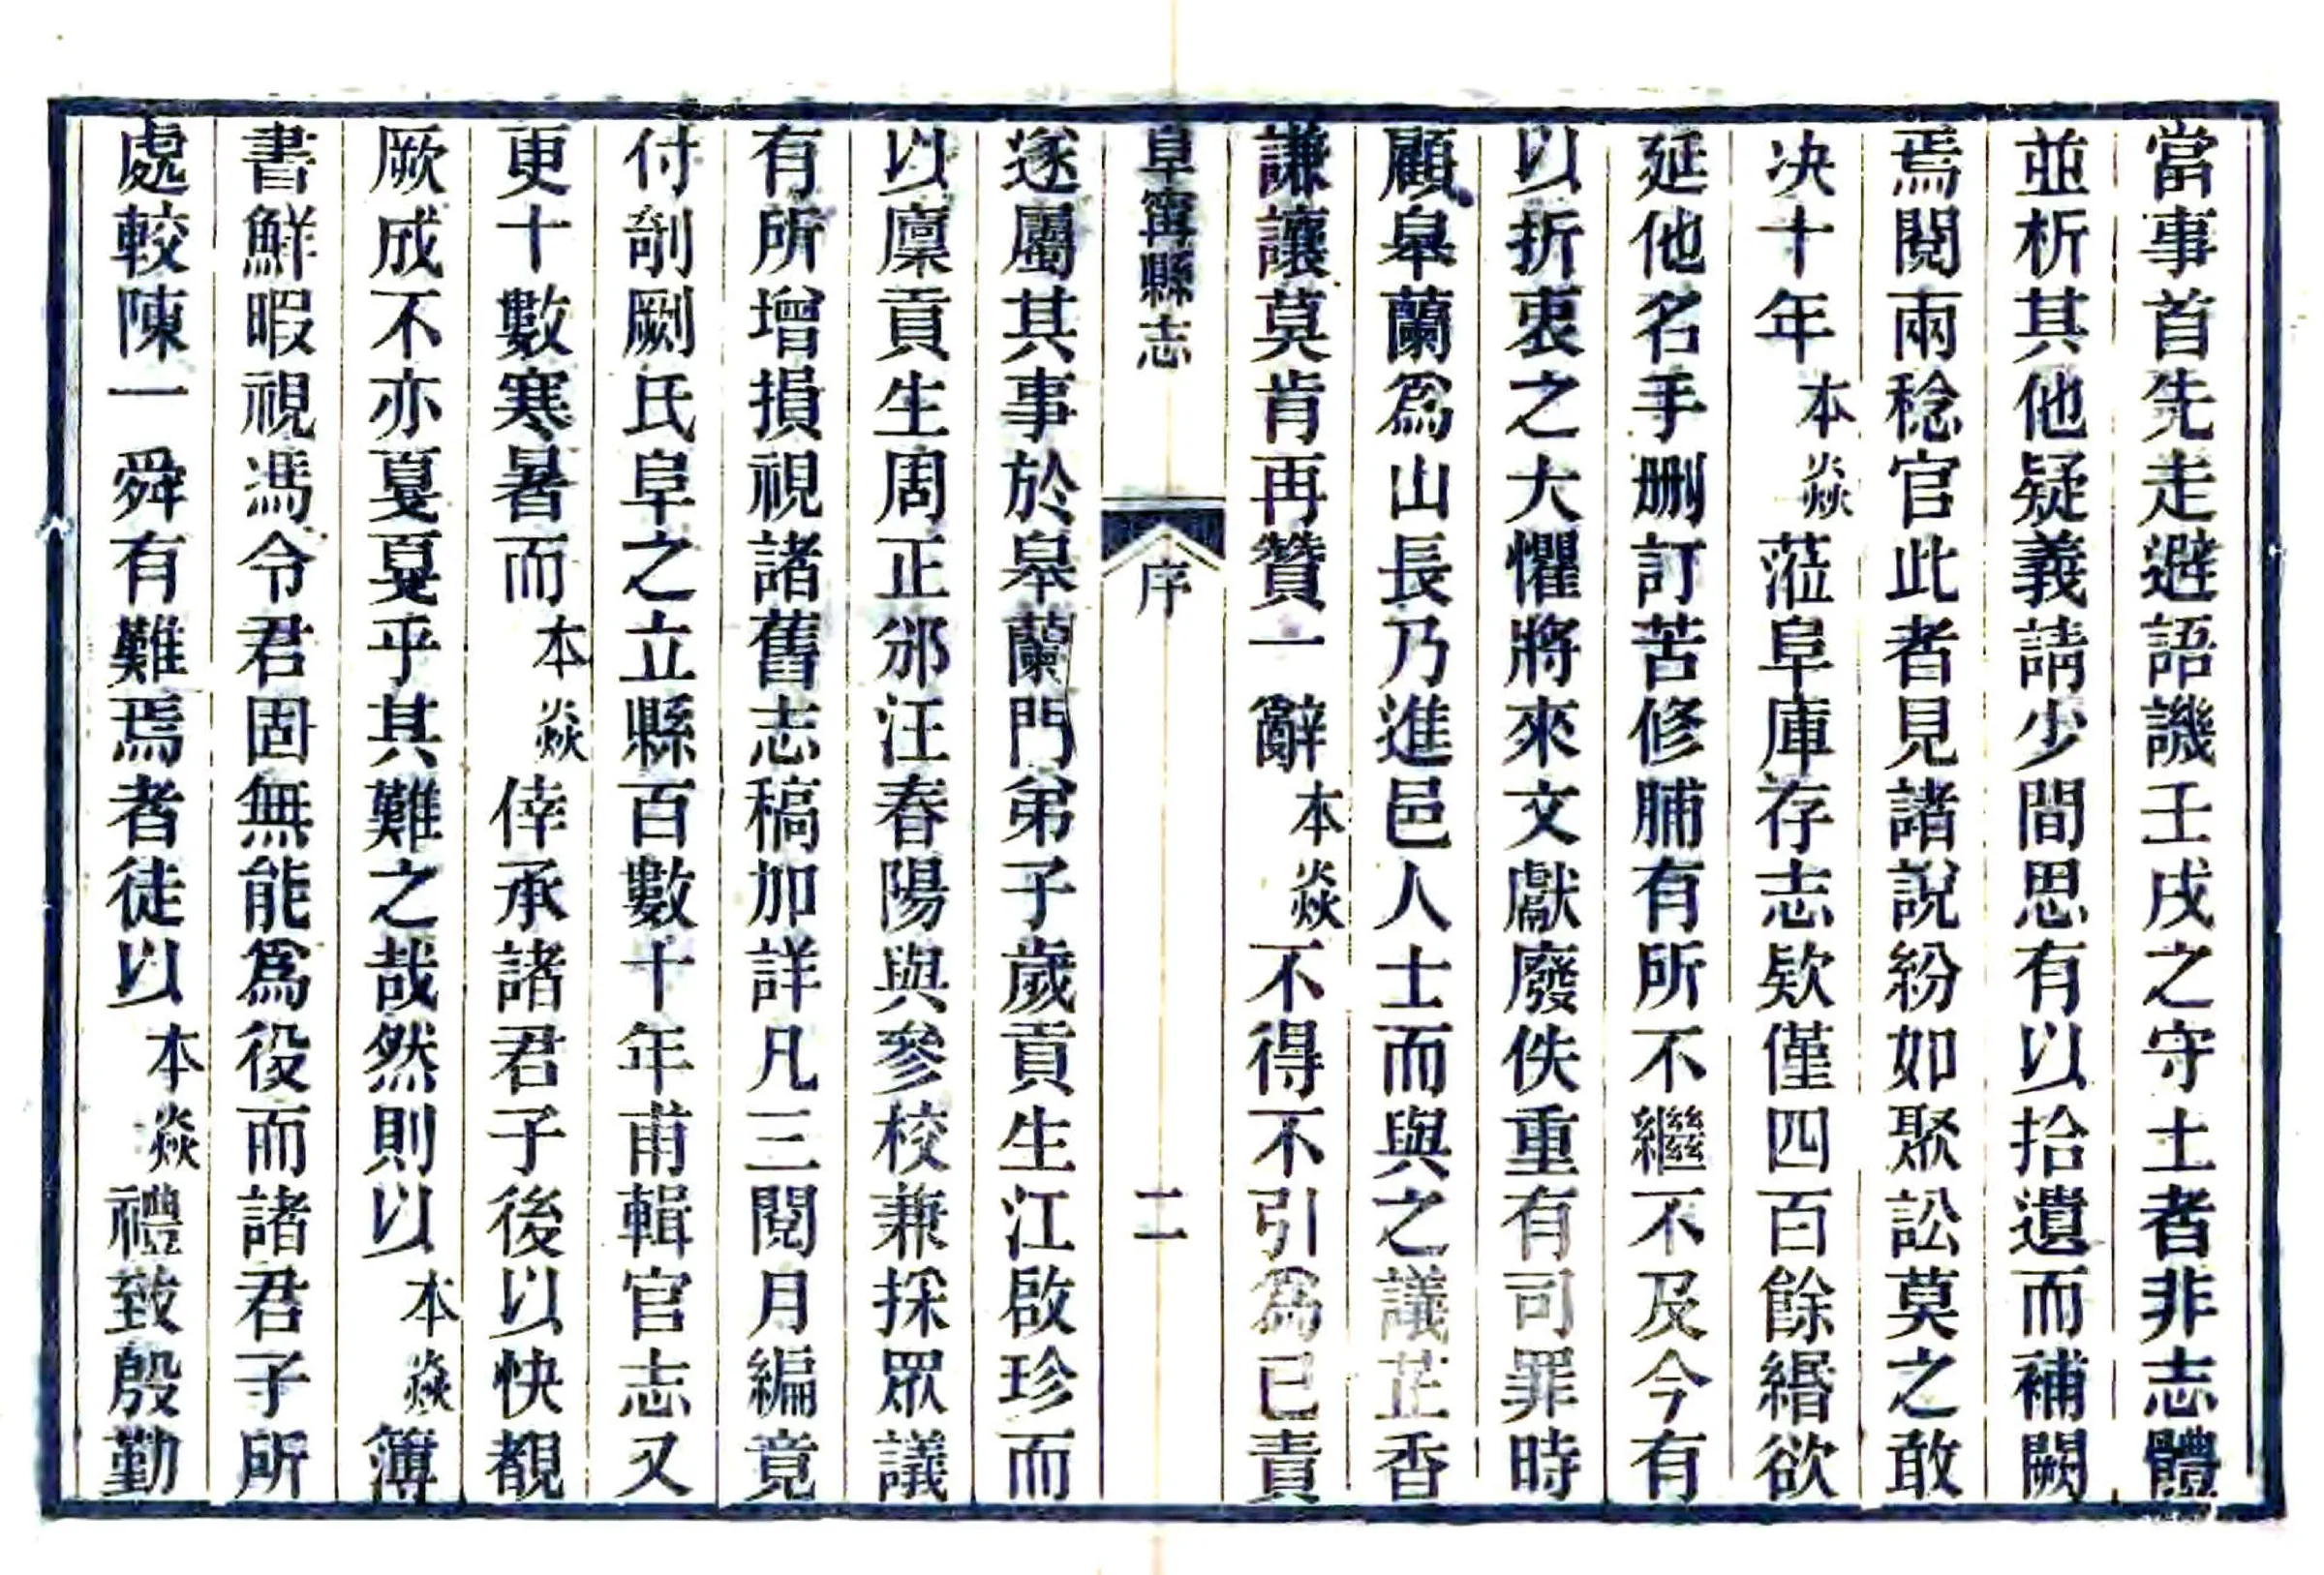 當事首先走避語譏壬戌之守土者非志體
並析其他疑義請少間思有以拾遺而補闕
焉閱兩稔官此者見諸說紛如聚訟莫之敢
决十年本焱蒞阜庫存志欵僅四百餘緡欲
延他名手删訂苦修脯有所不繼不及今有
以折衷之大懼將來文獻廢佚重有司罪時
顧臯蘭爲山長乃進邑人士而與之議芷香
謙讓莫肯再贊一辭本焱不得不引爲已責
阜寗縣志
序
二
遂屬其事於臯蘭門弟子歲貢生江啟珍而
以廩貢生周正邠汪春陽與參校兼採眾議
有所增損視諸舊志稿加詳凡三閱月編竟
付剞劂氏阜之立縣百數十年甫輯官志又
更十數寒暑而本焱倖承諸君子後以快覩
厥成不亦戛戛乎其難之哉然則以本焱簿
書鮮暇視馮令君固無能爲役而諸君子所
處較陳一舜有難焉者徒以本焱禮致殷勤